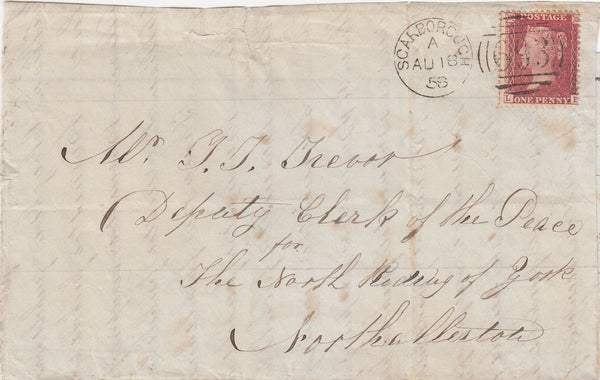 SCARBOROUGH
A
AU 18
58
POSTAGE
ONE PENNY
L E
Mr. T. T. Trevor
Deputy Clerk of the Peace
for
The North Riding of York
Northallerton